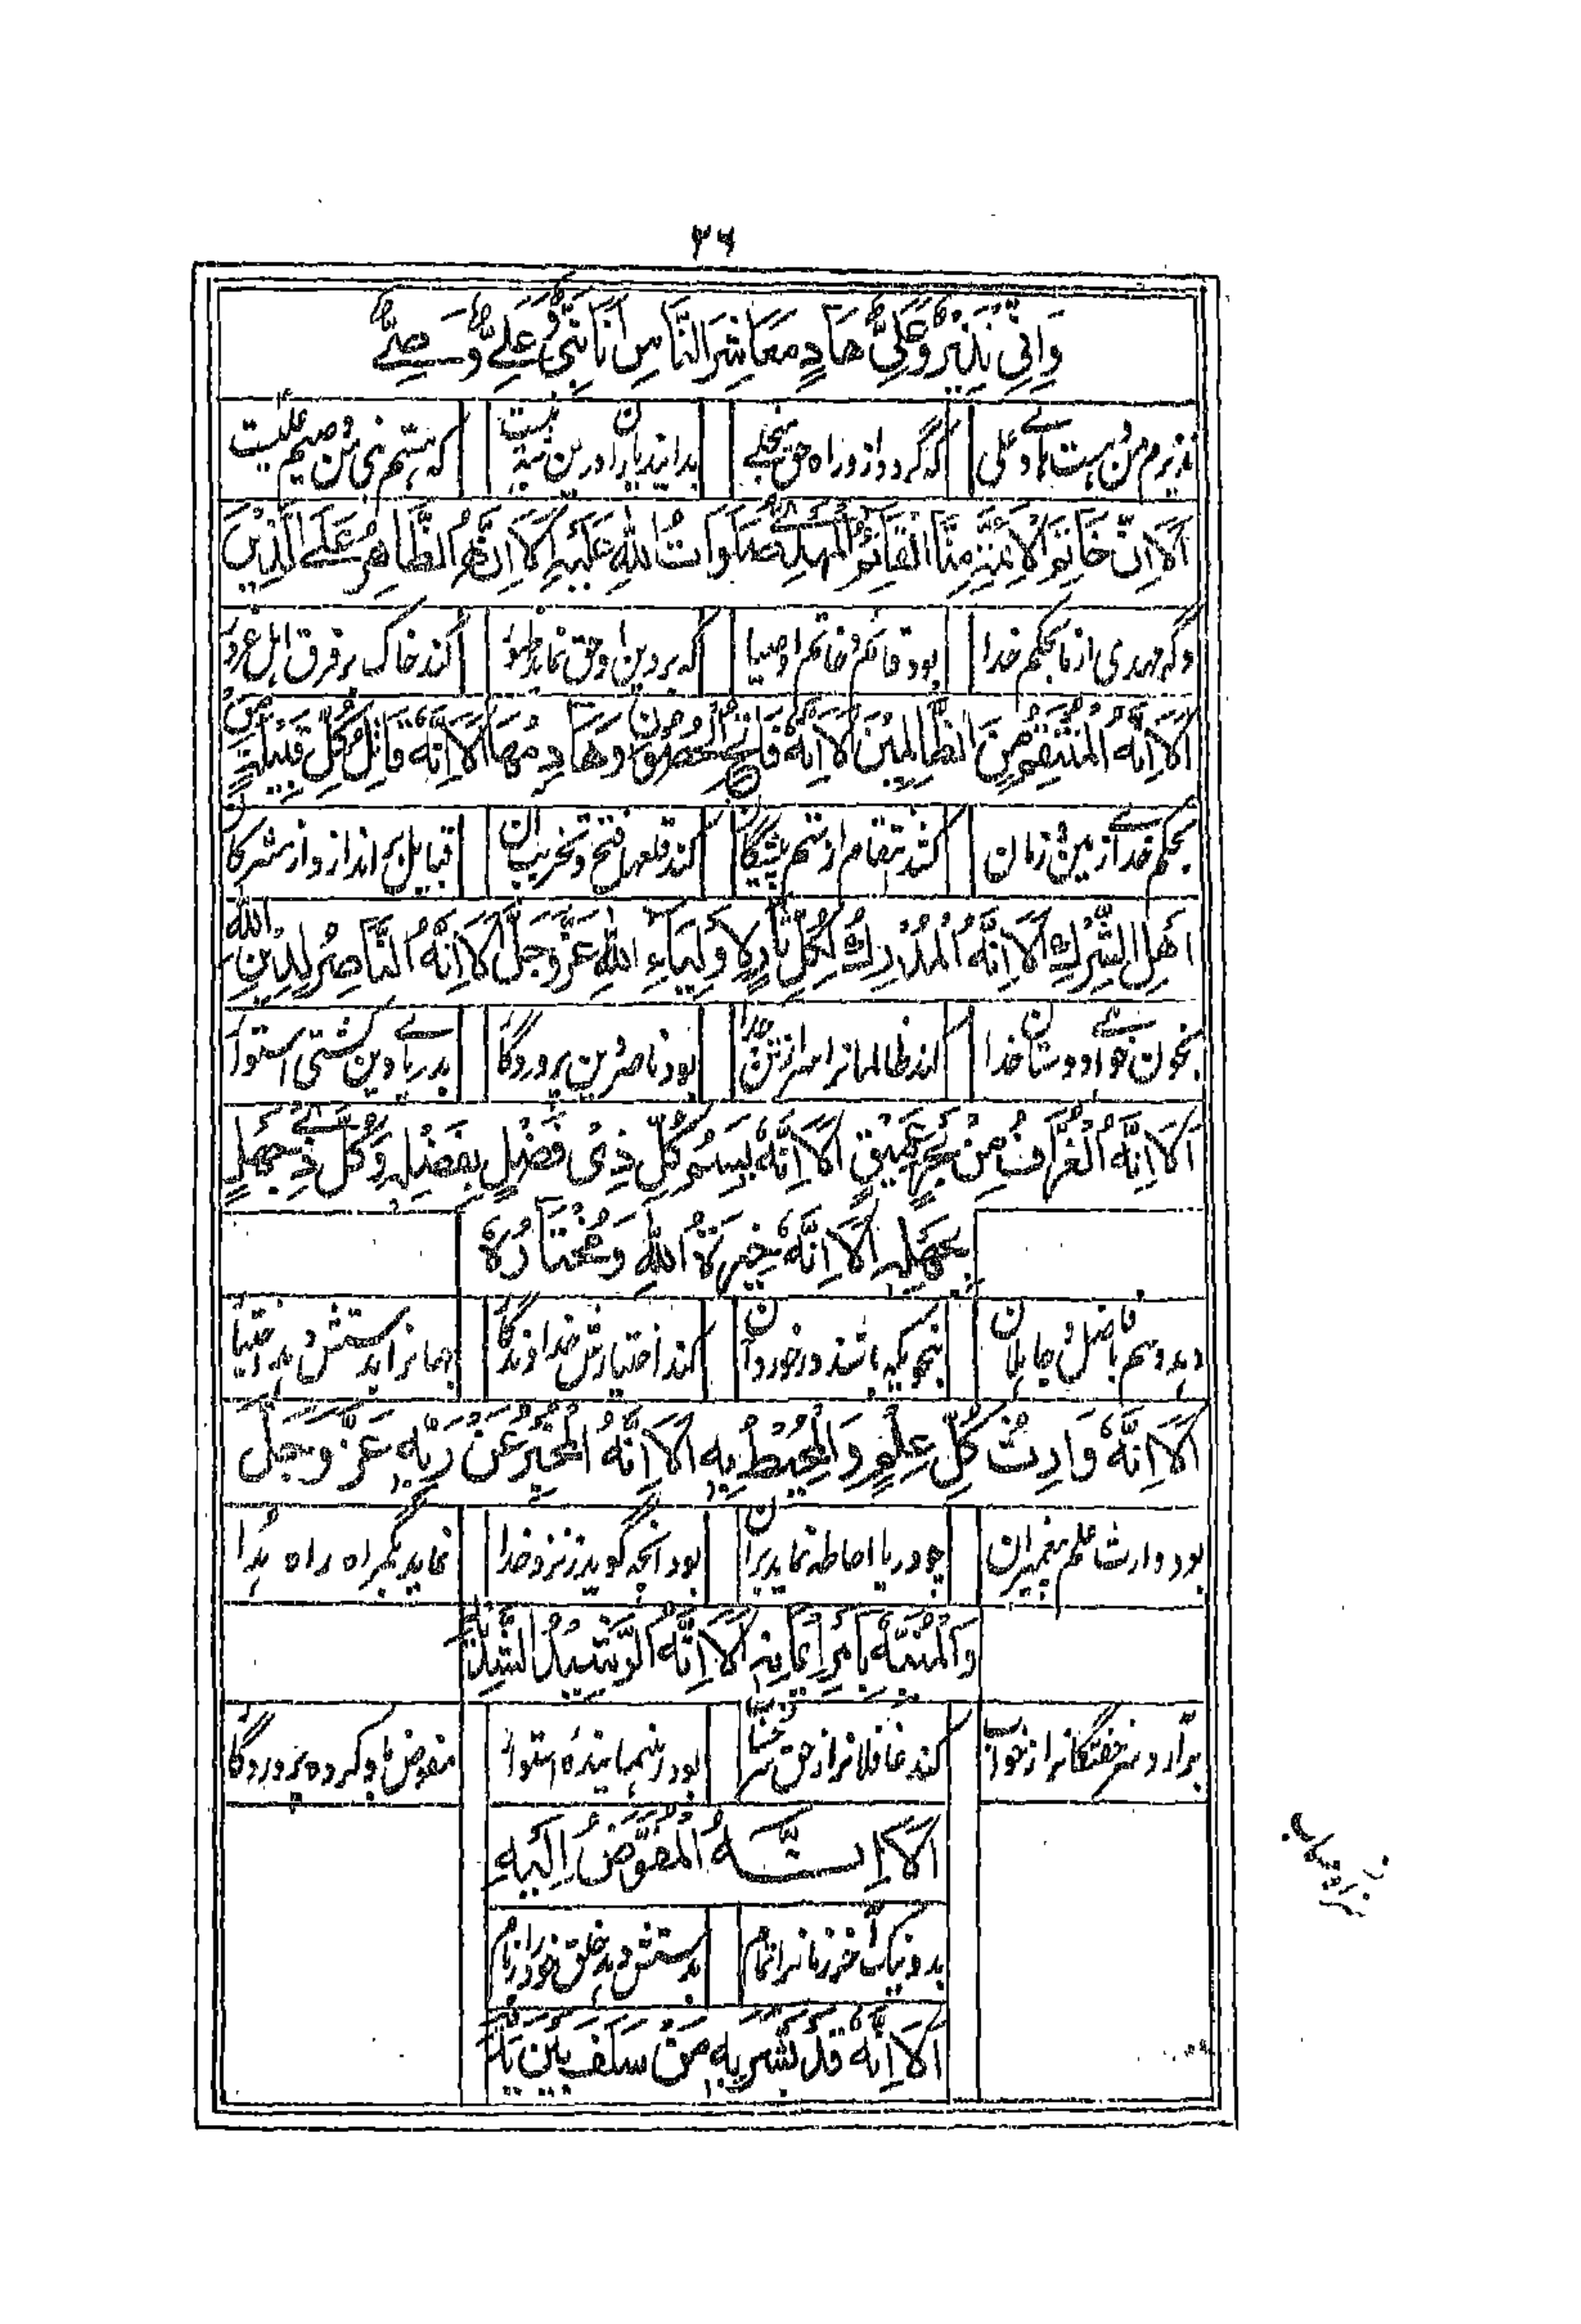 ۲۶
وَاِنِّي نَذِيْرٌ وَعَلِيٌّ هَادٍ مَعَاشِرَ النَّاسِ اَنَا نَبِيٌّ وَعَلِيٌّ وَصِيِّي
نذیرم من و هست هادی علی که گردد ازو راه حق منجلی بدانید یاران که هستم نبی من وصیم علیست
اَلَا اِنَّ خَاتَمَ الْاَئِمَّةِ مِنَّا الْقَائِمُ الْمَهْدِيُّ صَلَوَاتُ اللهِ عَلَيْهِ اَلَا اِنَّهُ الظَّاهِرُ عَلَى الَّذِيْنَ
وگر مهدی از ما بحکم خدا بود قائم و خاتم اوصیا که بر دین او حق نماید ظهور کند خاک بر فرق اهل غرور
اَلَا اِنَّهُ الْمُنْتَقِمُ مِنَ الظَّالِمِيْنَ اَلَا اِنَّهُ فَاتِحُ الْحُصُوْنِ وَهَادِمُهَا اَلَا اِنَّهُ قَاتِلُ كُلِّ قَبِيْلَةٍ مِنْ
بحکم خدای زمین و زمان کند انتقام از ستم پیشگان کند قلعها فتح و تخریب آن قبایل بر اندازد از مشرکان
اَهْلِ الشِّرْكِ اَلَا اِنَّهُ الْمُدْرِكُ لِكُلِّ ثَارٍ لِاَوْلِيَاءِ اللهِ عَزَّوَجَلَّ اَلَا اِنَّهُ النَّاصِرُ لِدِيْنِ اللهِ
بخون خواهی دوستان خدا کند ظالمانرا سر از تن جدا بود ناصر دین پروردگار بدریای دین کشتی استوار
اَلَا اِنَّهُ الْغَرَّافُ مِنْ بَحْرٍ عَمِيْقٍ اَلَا اِنَّهُ يَسِمُ كُلَّ ذِيْ فَضْلٍ بِفَضْلِهِ وَكُلَّ ذِيْ جَهْلٍ
بِجَهْلِهِ اَلَا اِنَّهُ خِيَرَةُ اللهِ وَمُخْتَارُهُ
دهد وسم با فاضل و جاهلان بنحویکه باشند در خورد آن کند اختیارش خداوندگار جهانرا بدستش دهد اختیار
اَلَا اِنَّهُ وَارِثُ كُلِّ عِلْمٍ وَالْمُحِيْطُ بِهِ اَلَا اِنَّهُ الْمُخْبِرُ عَنْ رَبِّهِ عَزَّ وَجَلَّ
بود وارث علم پیغمبران چو دریا احاطه نماید بران بود آنچه گوید ز نزد خدا نماید بگمراه راه هدا
وَالْمُنَبِّهُ بِاَمْرِ اِيْمَانِهِ اَلَا اِنَّهُ الرَّشِيْدُ السَّدِيْدُ
برآرد سر خفتگانرا ز خواب کند غافلانرا ز حق بود رهنماینده استوار مفوض باو کرده پروردگار
اَلَا اِنَّهُ الْمُفَوَّضُ اِلَيْهِ
بد و نیک آخر زمانرا تمام بدستش دهد خلق خود را زمام
اَلَا اِنَّهُ قَدْ بَشَّرَ بِهِ مَنْ سَلَفَ بَيْنَ يَدَيْهِ